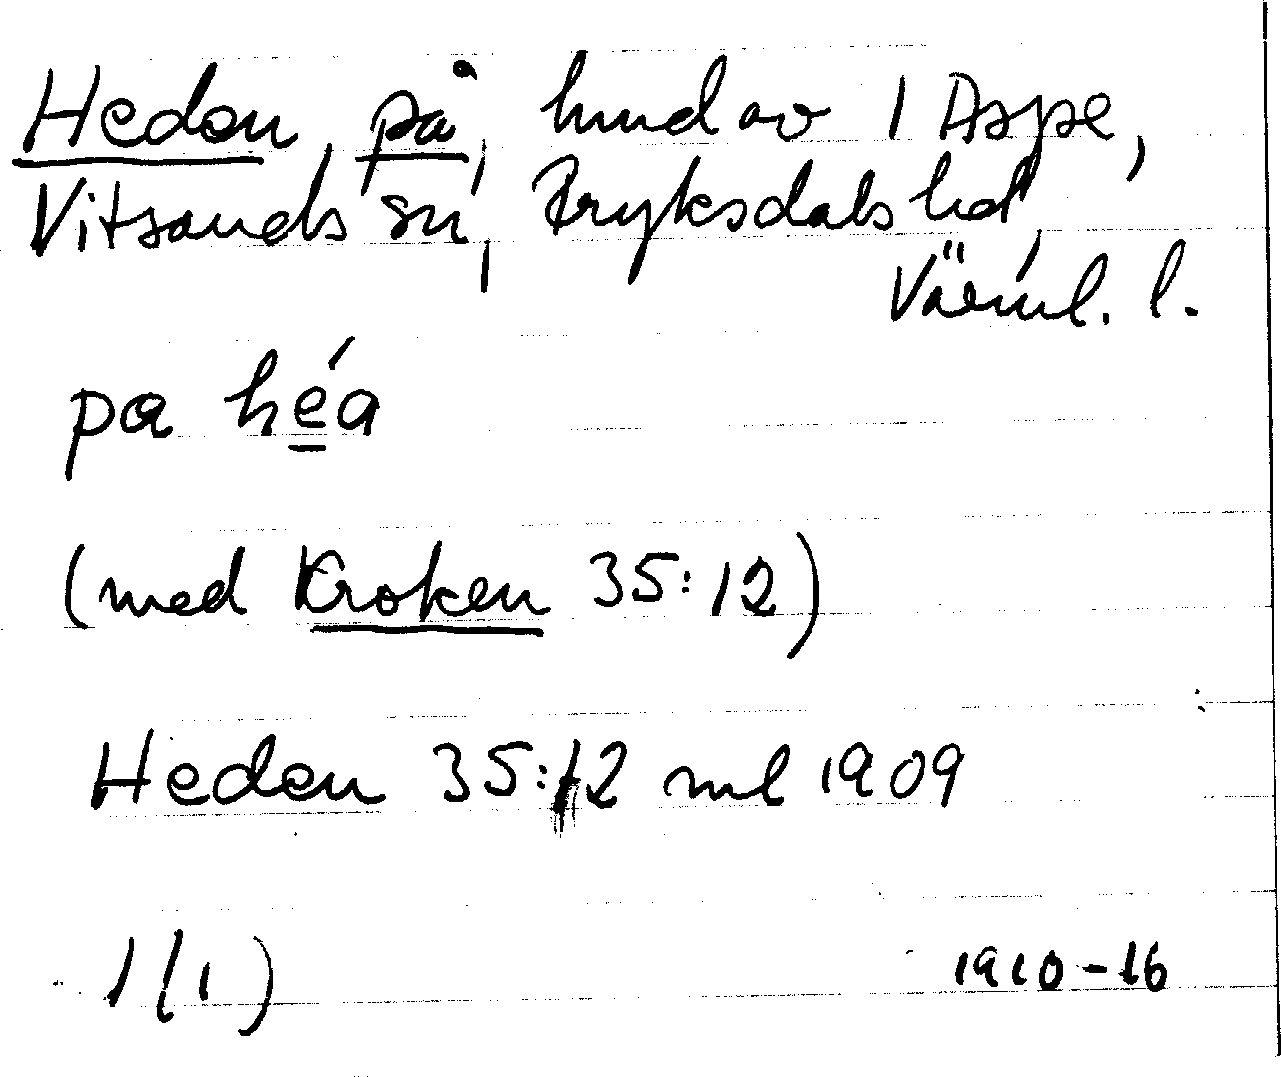 Heden, på, hmd av 1 Aspe,
Vitsands sn, Fryksdals hd,
Värml. l.
pa héa
(med Kroken 35:12)
Heden 35:12 ml 1909
1 (1) 1910-16